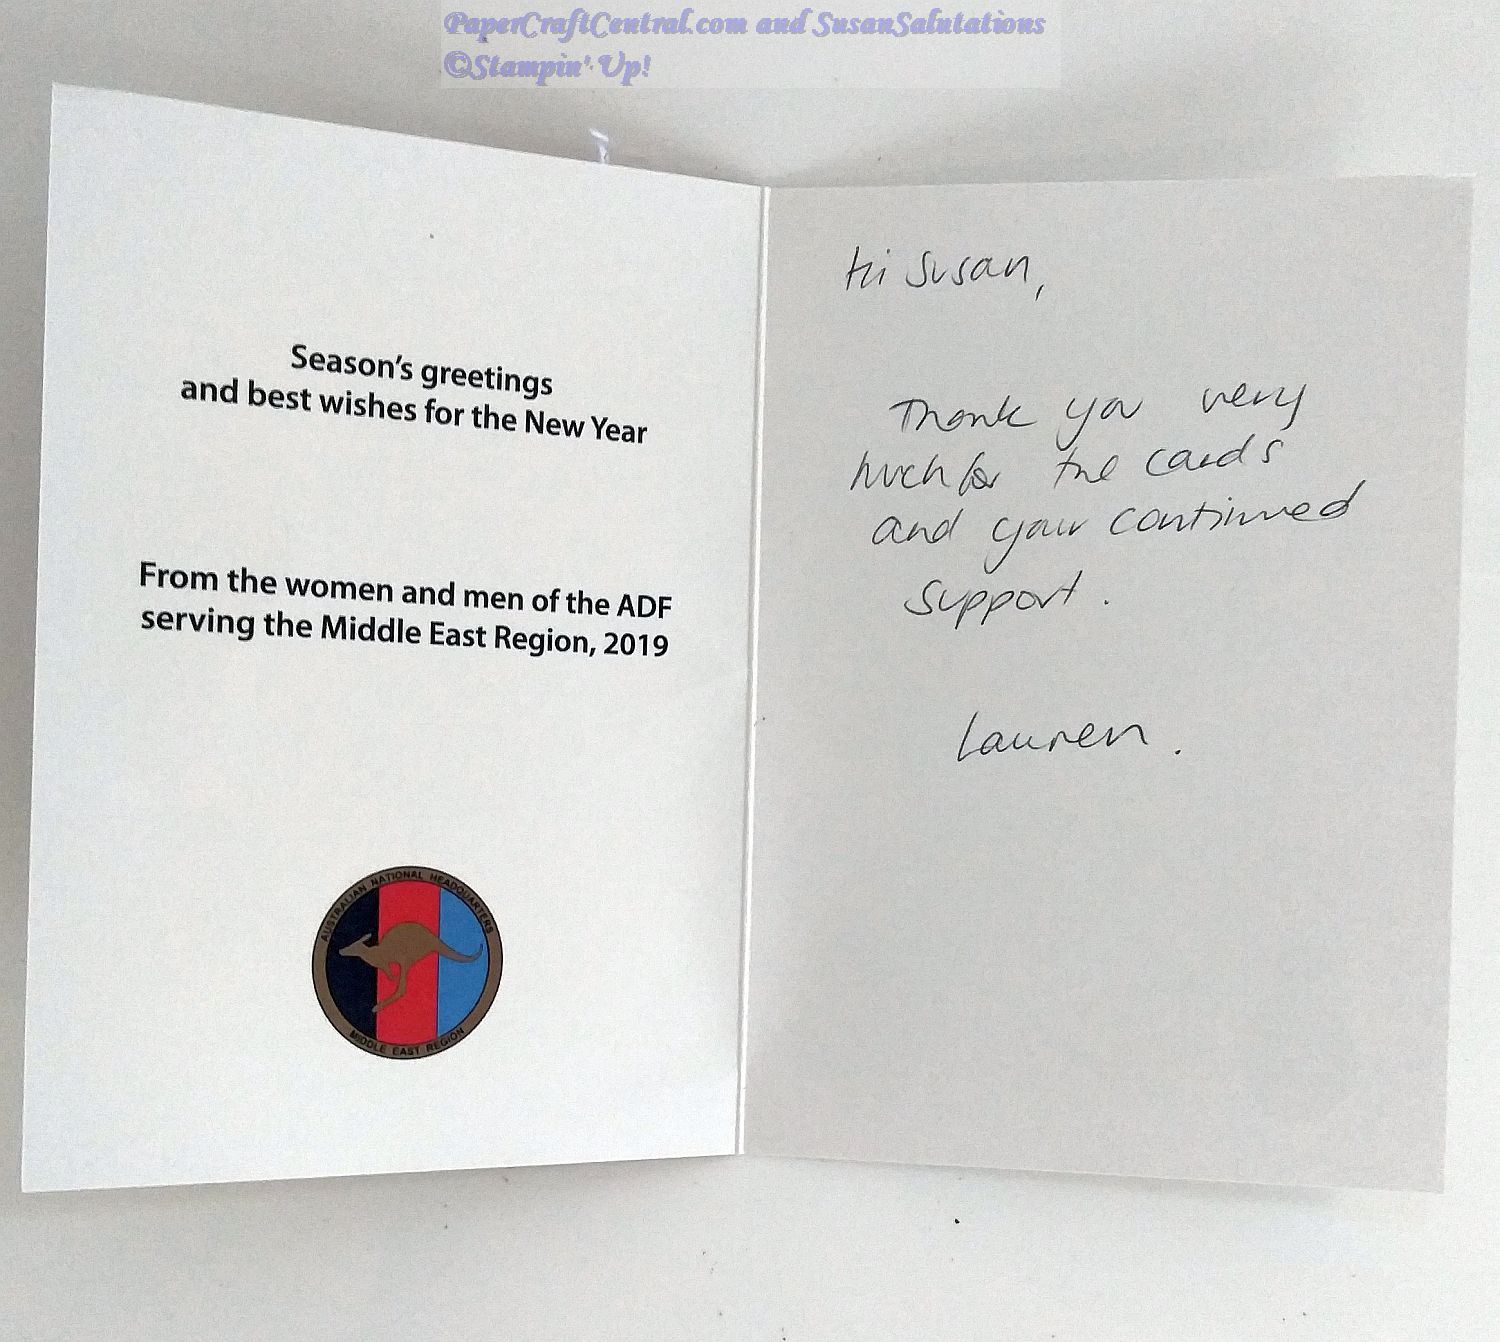 PaperCraftCentral.com and SusanSalutations
©Stampin' Up!
Season's greetings
and best wishes for the New Year
From the women and men of the ADF
serving the Middle East Region, 2019
AUSTRALIAN NATIONAL HEADQUARTERS
MIDDLE EAST REGION
Hi Susan,
Thank you very
much for the cards
and your continued
support.
Lauren.